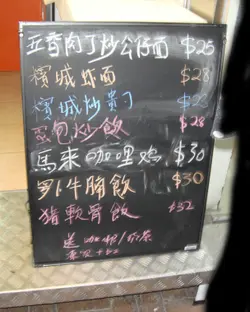 五香肉丁炒公仔面 $25
檳城虾面 $28
檳城炒貴刁 $28
免包炒飲 $28
馬來咖哩鸡 $30
罗卜牛腩飲 $30
猪軟骨飲 $32
送咖啡/奶茶